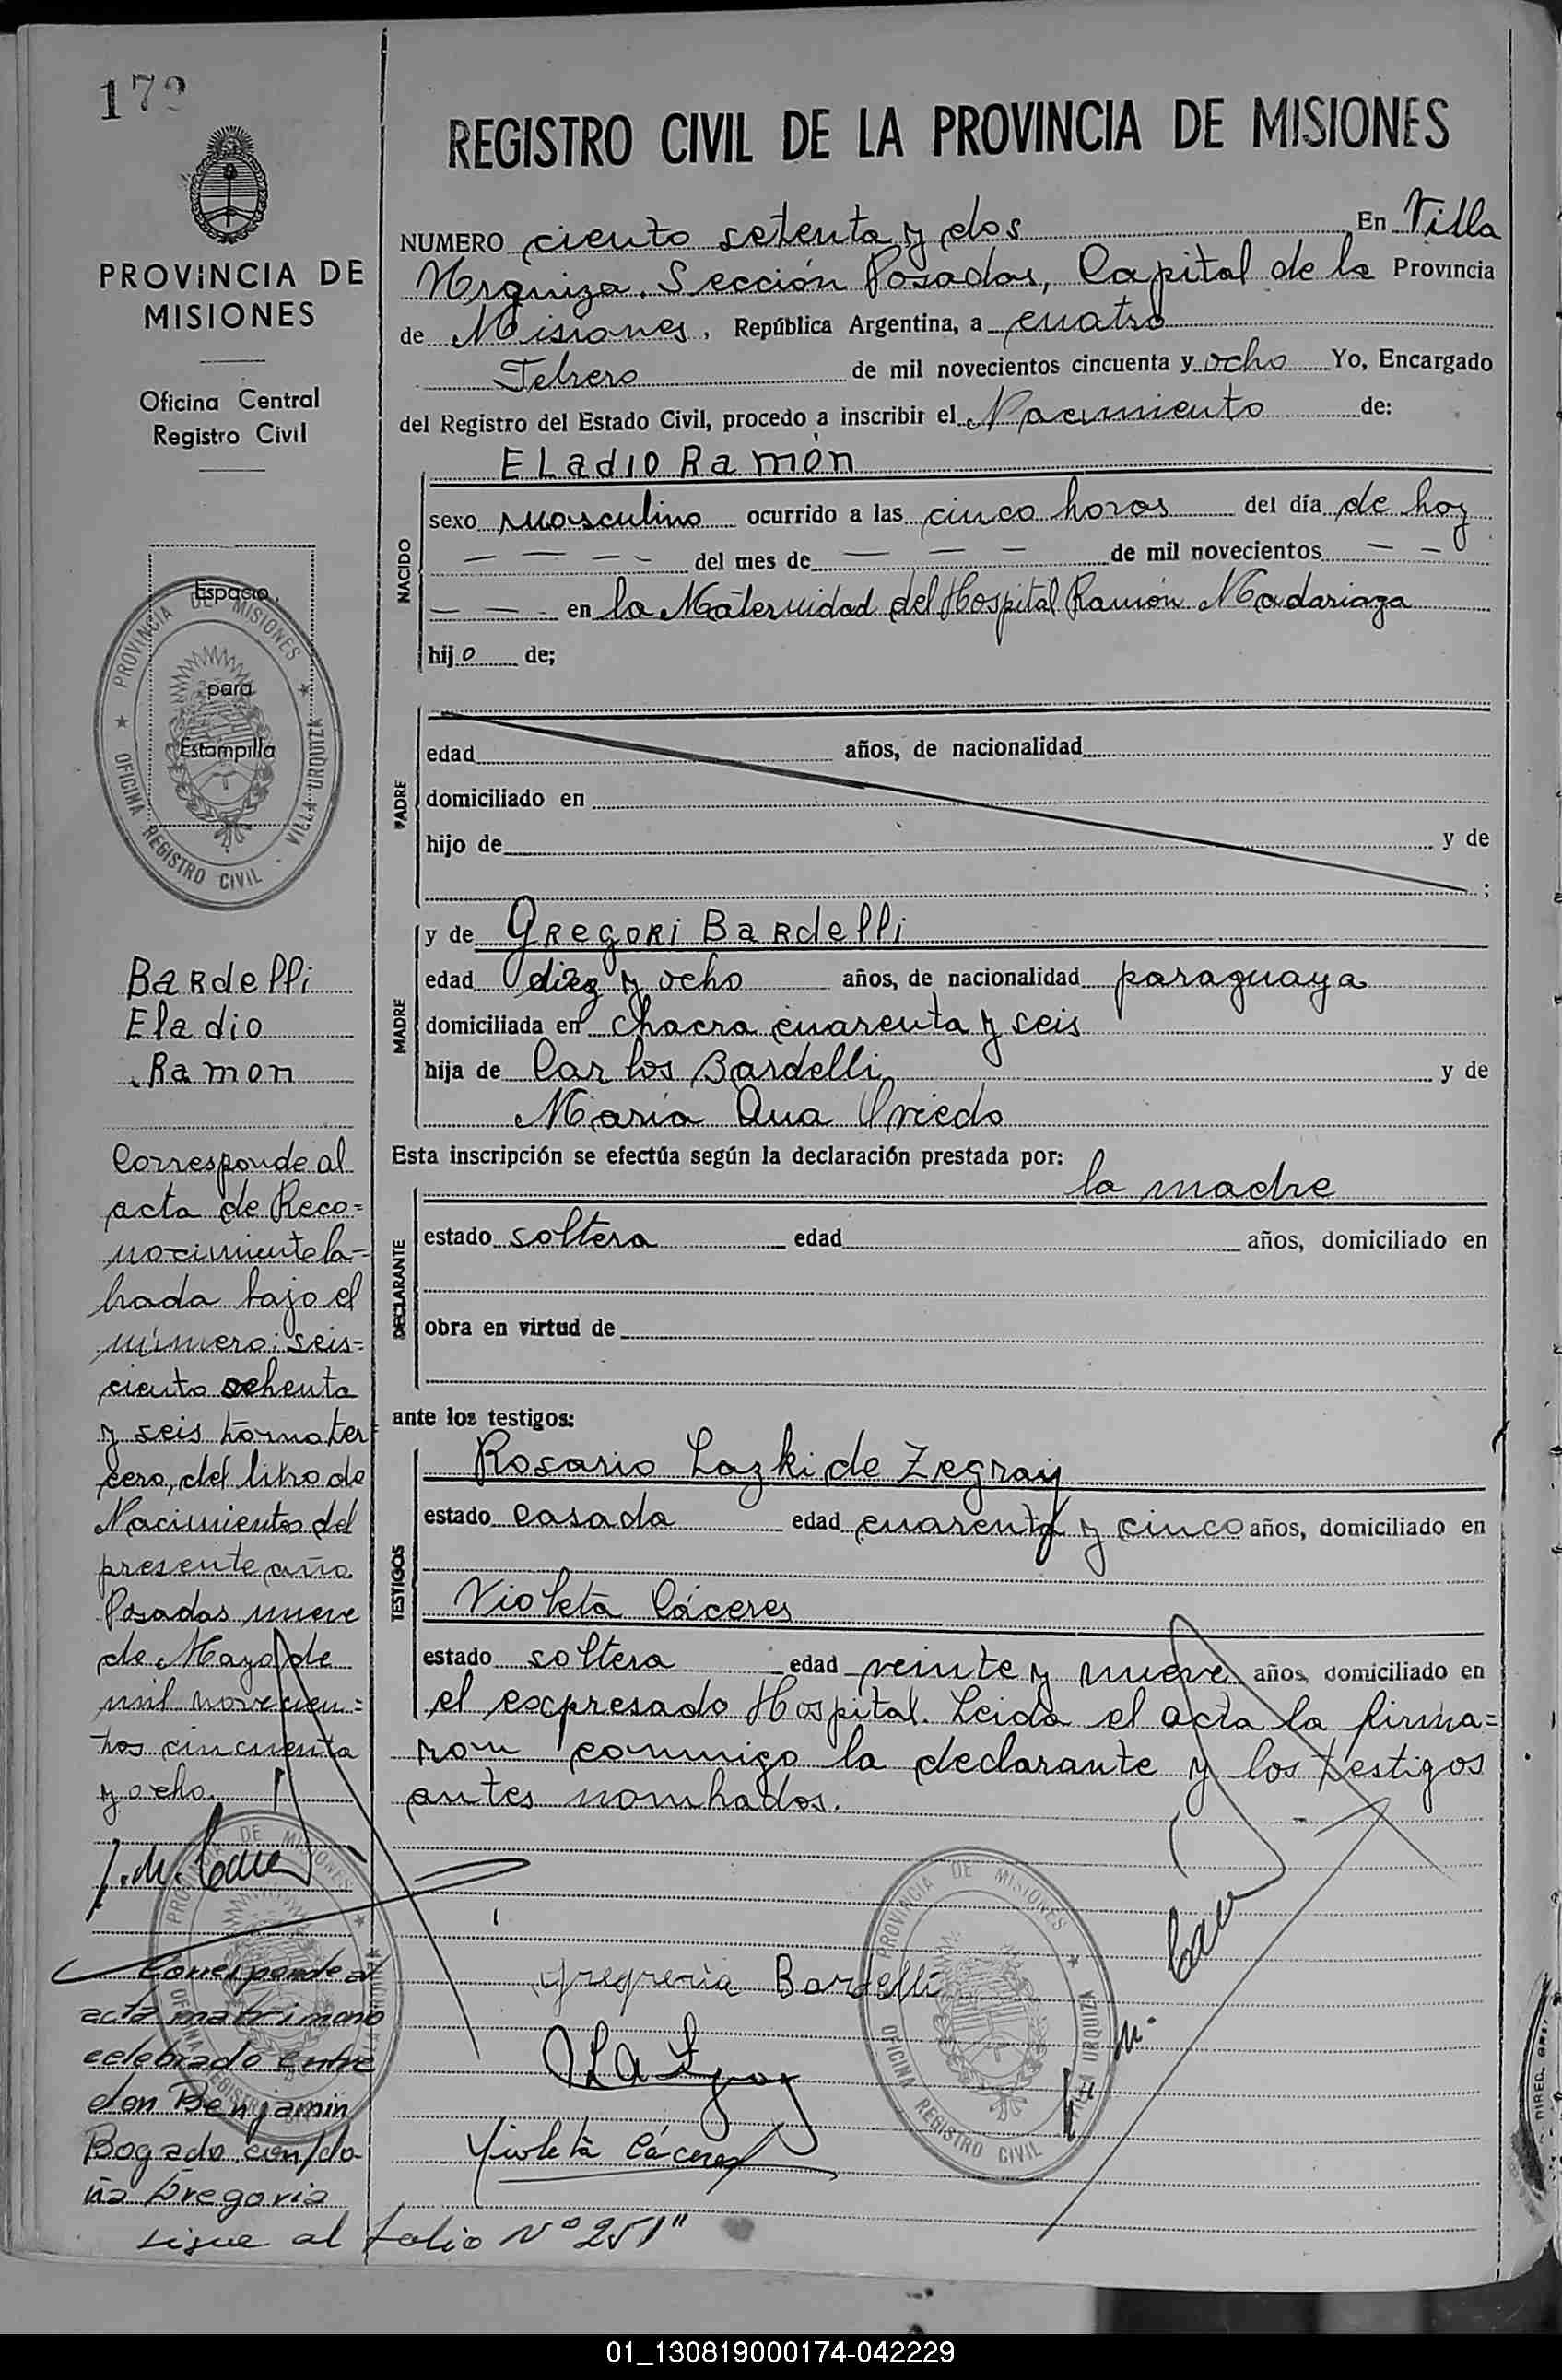 172
PROVINCIA DE
MISIONES
Oficina Central
Registro Civil
Espacio
para
Estampilla
PROVINCIA DE MISIONES
OFICINA REGISTRO CIVIL - VILLA URQUIZA
Bardelli
Eladio
Ramon
Corresponde al
acta de Reco=
nocimiento la=
brada bajo el
número: seis=
ciento ochenta
y seis tomo ter
cero, del libro de
Nacimientos del
presente año.
Posadas nueve
de Mayo de
mil novecien=
tos cincuenta
y ocho.
Corresponde al
acta matrimonio
celebrado entre
don Benjamin
Bogado con/do-
ña Gregoria
sigue al folio Nº 251"
REGISTRO CIVIL DE LA PROVINCIA DE MISIONES
NUMERO ciento setenta y dos En Villa
Urquiza. Sección Posadas, Capital de la Provincia
de Misiones, República Argentina, a cuatro
Febrero de mil novecientos cincuenta y ocho Yo, Encargado
del Registro del Estado Civil, procedo a inscribir el Nacimiento de:
NACIDO
Eladio Ramón
sexo masculino ocurrido a las cinco horas del día de hoy
— — — — del mes de — — — de mil novecientos — —
— — - en la Maternidad del Hospital Ramón Madariaga
hijo de;
PADRE
edad años, de nacionalidad
domiciliado en
hijo de y de
;
MADRE
y de Gregori Bardelli
edad diez y ocho años, de nacionalidad paraguaya
domiciliada en chacra cuarenta y seis
hija de Carlos Bardelli y de
María Ana Oviedo
Esta inscripción se efectúa según la declaración prestada por:
la madre
DECLARANTE
estado soltera edad años, domiciliado en
obra en virtud de
ante los testigos:
TESTIGOS
Rosario Lazki de Zegray
estado casada edad cuarenta y cinco años, domiciliado en
Violeta Cáceres
estado soltera edad veinte y nueve años, domiciliado en
el expresado Hospital. Leida el acta la firma=
ron conmigo la declarante y los testigos
antes nombrados.
Gregoria Bardelli
Violeta Cáceres
PROVINCIA DE MISIONES
OFICINA REGISTRO CIVIL VILLA URQUIZA
PROVINCIA DE MISIONES
OFICINA REGISTRO CIVIL VILLA URQUIZA
01_130819000174-042229